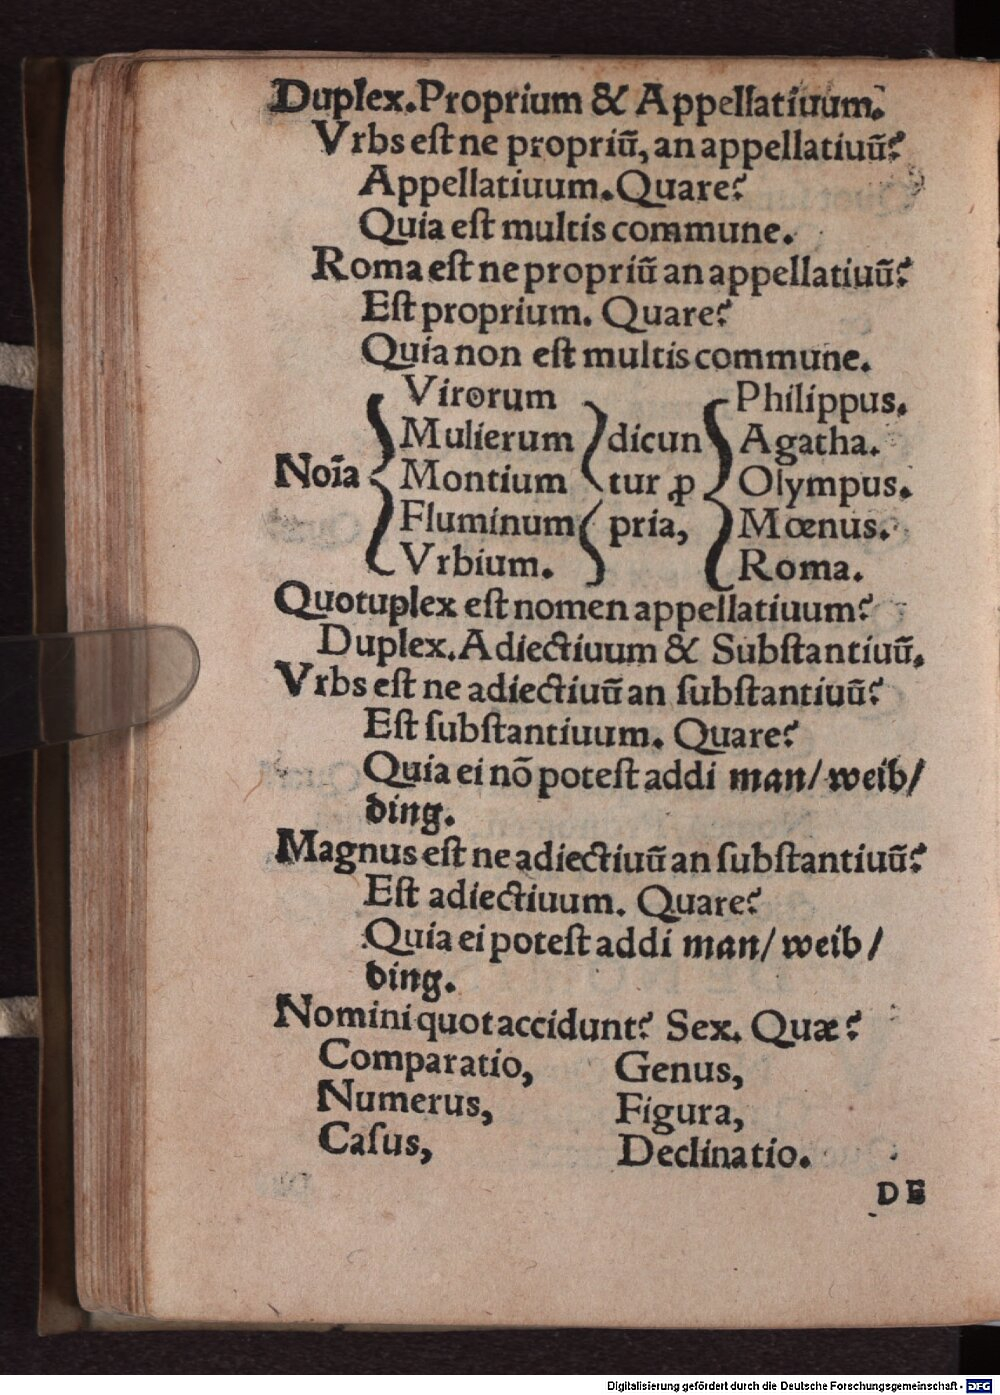 Duplex. Proprium & Appellatiuum.
Vrbs eſt ne propriū, an appellatiuū?
Appellatiuum. Quare?
Quia eſt multis commune.
Roma eſt ne propriū an appellatiuū?
Eſt proprium. Quare?
Quia non eſt multis commune.
Virorum Philippus.
Mulierum dicun Agatha.
Noīa Montium tur ꝓ Olympus.
Fluminum pria, Mœnus.
Vrbium. Roma.
Quotuplex eſt nomen appellatiuum?
Duplex. Adiectiuum & Subſtantiuū.
Vrbs eſt ne adiectiuū an ſubſtantiuū?
Eſt ſubſtantiuum. Quare?
Quia ei nō poteſt addi man/ weib/
ding.
Magnus eſt ne adiectiuū an ſubſtantiuū?
Eſt adiectiuum. Quare?
Quia ei poteſt addi man/ weib/
ding.
Nomini quot accidunt? Sex. Quæ?
Comparatio, Genus,
Numerus, Figura,
Caſus, Declinatio.
DE
Digitalisierung gefördert durch die Deutsche Forschungsgemeinschaft - DFG